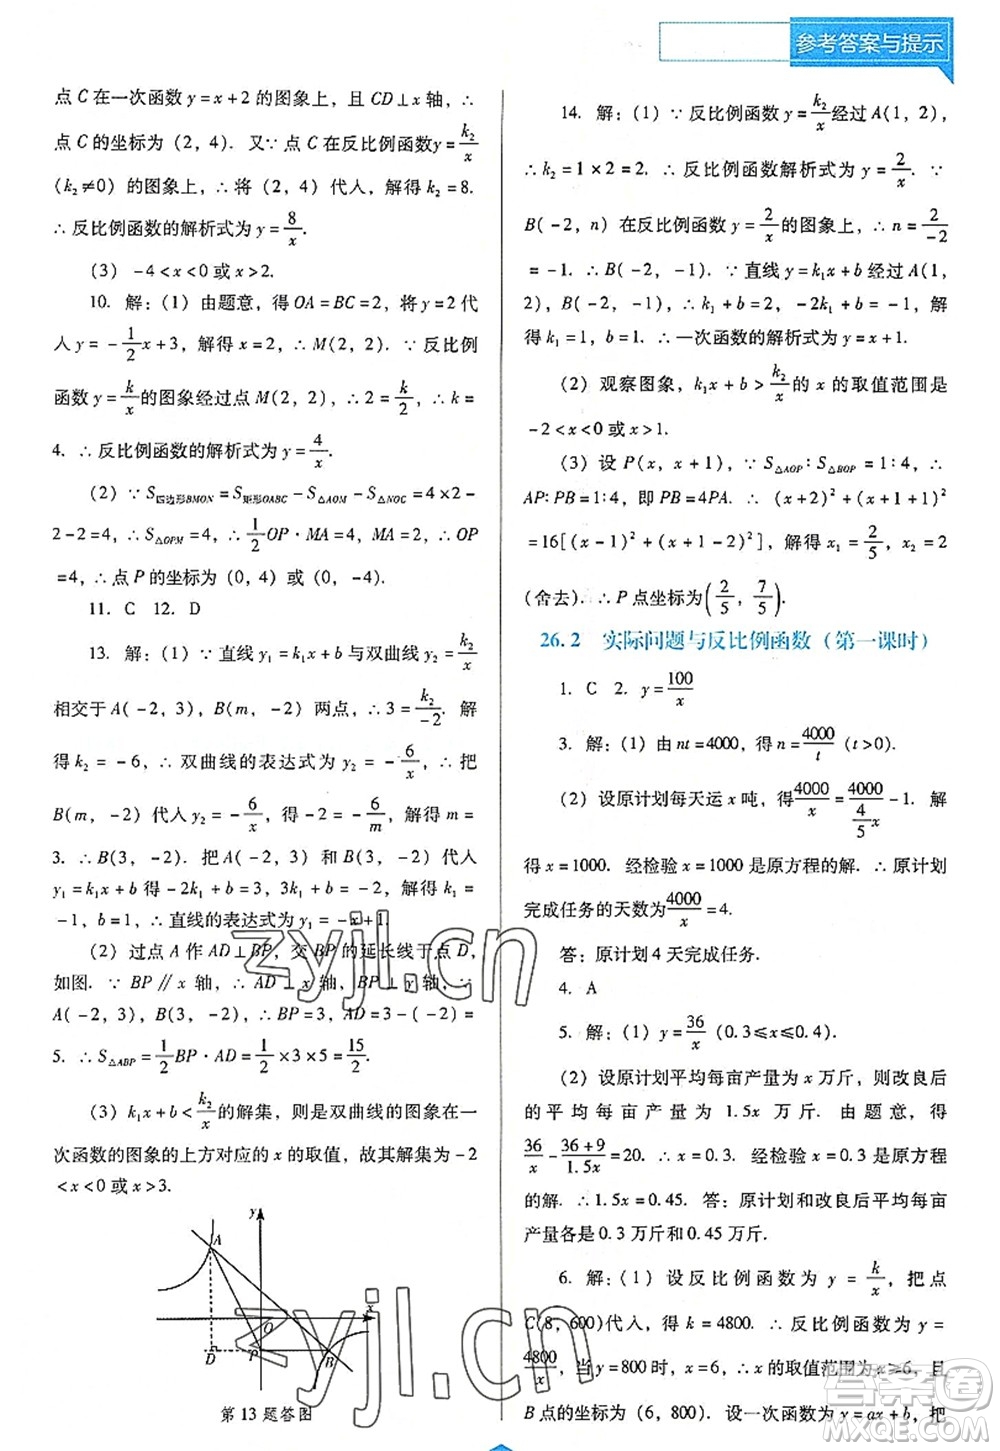 参考答案与提示
点 C 在一次函数 y=x+2 的图象上，且 CD⊥x 轴，∴
点 C 的坐标为（2，4）. 又∵点 C 在反比例函数y=k₂/x
（k₂≠0）的图象上，∴将（2，4）代入，解得 k₂=8.
∴反比例函数的解析式为 y=8/x.
（3）-4<x<0或 x>2.
10. 解：（1）由题意，得 OA=BC=2，将 y=2 代
入 y=-1/2x+3，解得 x=2，∴M（2，2）. ∵反比例
函数 y=k/x 的图象经过点 M（2，2），∴2=k/2，∴k=
4. ∴反比例函数的解析式为 y=4/x.
（2）∵S四边形BMON=S矩形OABC-S△AOM-S△NOC=4×2-
2-2=4，∴S△OPM=4，∴1/2OP·MA=4，MA=2，∴OP
=4，∴点 P 的坐标为（0，4）或（0，-4）.
11. C 12. D
13. 解：（1）∵直线 y₁=k₁x+b 与双曲线 y₂=k₂/x
相交于 A（-2，3），B（m，-2）两点，∴3=k₂/-2. 解
得 k₂=-6，∴双曲线的表达式为 y₂=-6/x，∴把
B（m，-2）代入 y₂=-6/x，得-2=-6/m，解得 m=
3. ∴B（3，-2）. 把 A（-2，3）和 B（3，-2）代入
y₁=k₁x+b 得-2k₁+b=3，3k₁+b=-2，解得 k₁=
-1，b=1，∴直线的表达式为 y₁=-x+1.
（2）过点 A 作 AD⊥BP，交 BP 的延长线于点 D，
如图. ∵BP∥x 轴，∴AD⊥x 轴，BP⊥y 轴，∵
A（-2，3），B（3，-2），∴BP=3，AD=3-（-2）=
5. ∴S△ABP=1/2BP·AD=1/2×3×5=15/2.
（3）k₁x+b<k₂/x的解集，则是双曲线的图象在一
次函数的图象的上方对应的 x 的取值，故其解集为-2
<x<0 或 x>3.
y
A
x
O
D
P
B
第 13 题答图
14. 解：（1）∵反比例函数 y=k₂/x经过 A（1，2），
∴k₂=1×2=2. ∴反比例函数解析式为 y=2/x. ∵
B（-2，n）在反比例函数 y=2/x的图象上，∴n=2/-2
=-1. ∴B（-2，-1）. ∵直线 y=k₁x+b 经过 A（1，
2），B（-2，-1），∴k₁+b=2，-2k₁+b=-1，解
得 k₁=1，b=1. ∴一次函数的解析式为 y=x+1.
（2）观察图象，k₁x+b>k₂/x的 x 的取值范围是
-2<x<0 或 x>1.
（3）设 P（x，x+1），∵S△AOP∶S△BOP=1∶4，∴
AP∶PB=1∶4，即 PB=4PA. ∴（x+2）²+（x+1+1）²
=16[（x-1）²+（x+1-2）²]，解得 x₁=2/5，x₂=2
（舍去）. ∴P 点坐标为(2/5，7/5).
26.2 实际问题与反比例函数（第一课时）
1. C 2. y=100/x
3. 解：（1）由 nt=4000，得 n=4000/t（t>0）.
（2）设原计划每天运 x 吨，得4000/x=4000/(4/5x)-1. 解
得 x=1000. 经检验 x=1000 是原方程的解. ∴原计划
完成任务的天数为4000/x=4.
答：原计划 4 天完成任务.
4. A
5. 解：（1）y=36/x（0.3≤x≤0.4）.
（2）设原计划平均每亩产量为 x 万斤，则改良后
的平均每亩产量为 1.5x 万斤. 由题意，得
36/x-36+9/1.5x=20. ∴x=0.3. 经检验 x=0.3 是原方程
的解. ∴1.5x=0.45. 答：原计划和改良后平均每亩
产量各是 0.3 万斤和 0.45 万斤.
6. 解：（1）设反比例函数为 y=k/x，把点
C（8，600）代入，得 k=4800. ∴反比例函数为 y=
4800/x，当 y=800 时，x=6，∴x 的取值范围为 x≥6，且
B 点的坐标为（6，800）. 设一次函数为 y=ax+b，把
zyjl.cn
zyjl.cn
答案圈